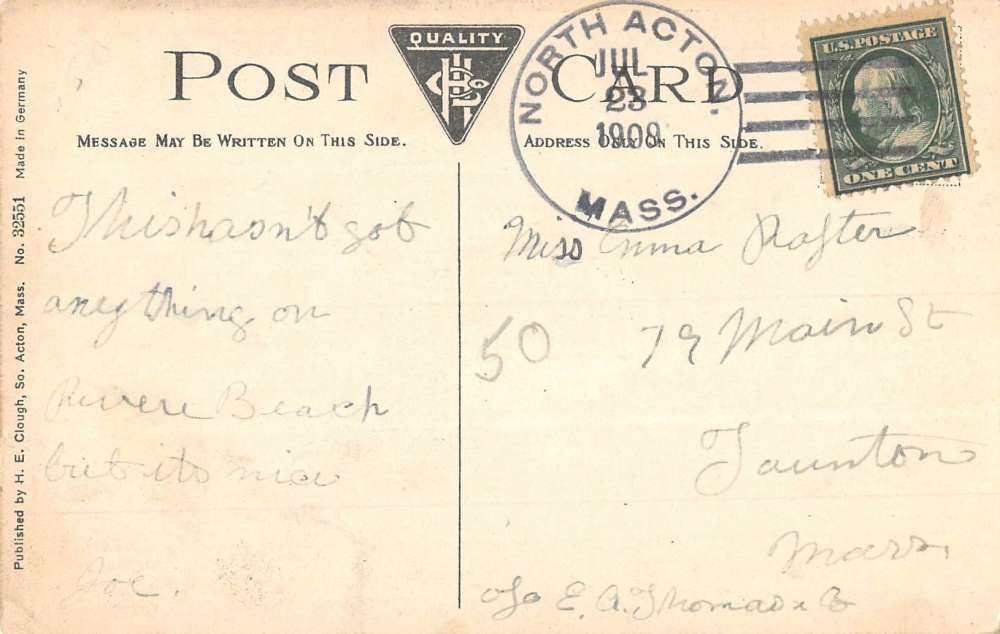 POST CARD
QUALITY
MESSAGE MAY BE WRITTEN ON THIS SIDE.
ADDRESS ONLY ON THIS SIDE.
NORTH ACTON,
JUL
23
1909
MASS.
U.S. POSTAGE
ONE CENT
Published by H. E. Clough, So. Acton, Mass. No. 32551 Made in Germany
This hasn't got
anything on
Revere Beach
but its nice
Joe.
Miss Emma Rafter
50
79 Main St
Taunton
Mass.
c/o E. A. Thomas